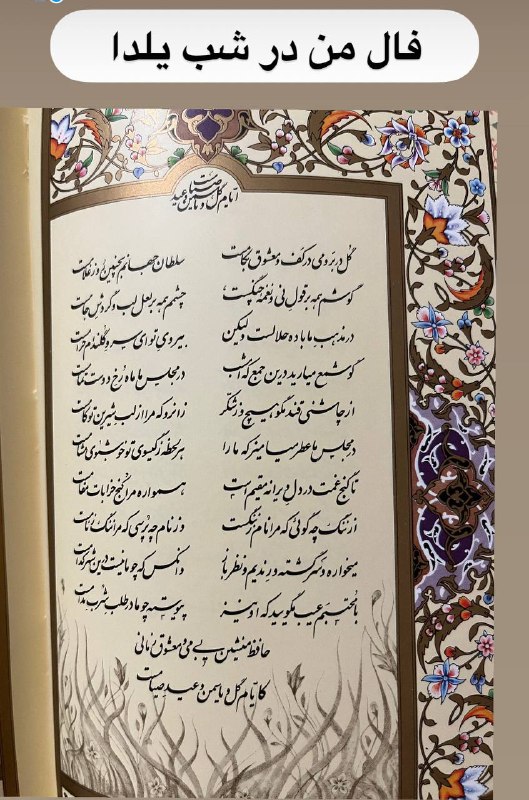 فال من در شب یلدا
ایام گل و یاسمین و عید صیامست
گل در بر و می در کف و معشوق بکامست سلطان جهانم بچنین روز غلامست
گوشم همه بر قول نی و نغمه چنگست چشمم همه بر لعل لب و گردش جامست
در مذهب ما باده حلالست ولیکن بی روی تو ای سرو گلندام حرامست
گو شمع میارید درین جمع که امشب در مجلس ما ماه رخ دوست تمامست
از چاشنی قند مگو هیچ و ز شکر زانرو که مرا از لب شیرین تو کامست
در مجلس ما عطر میامیز که ما را هر لحظه ز گیسوی تو خوشبوی مشامست
تا گنج غمت در دل ویرانه مقیم است همواره مرا کنج خرابات مقامست
از ننگ چه گوئی که مرا نام ز ننگست وز نام چه پرسی که مرا ننگ ز نامست
میخواره و سرگشته و رندیم و نظرباز وانکس که چو ما نیست درین شهر کدامست
با محتسبم عیب مگویید که او نیز پیوسته چو ما در طلب شرب مدامست
حافظ منشین بی می و معشوق زمانی
کایام گل و یاسمن و عید صیامست